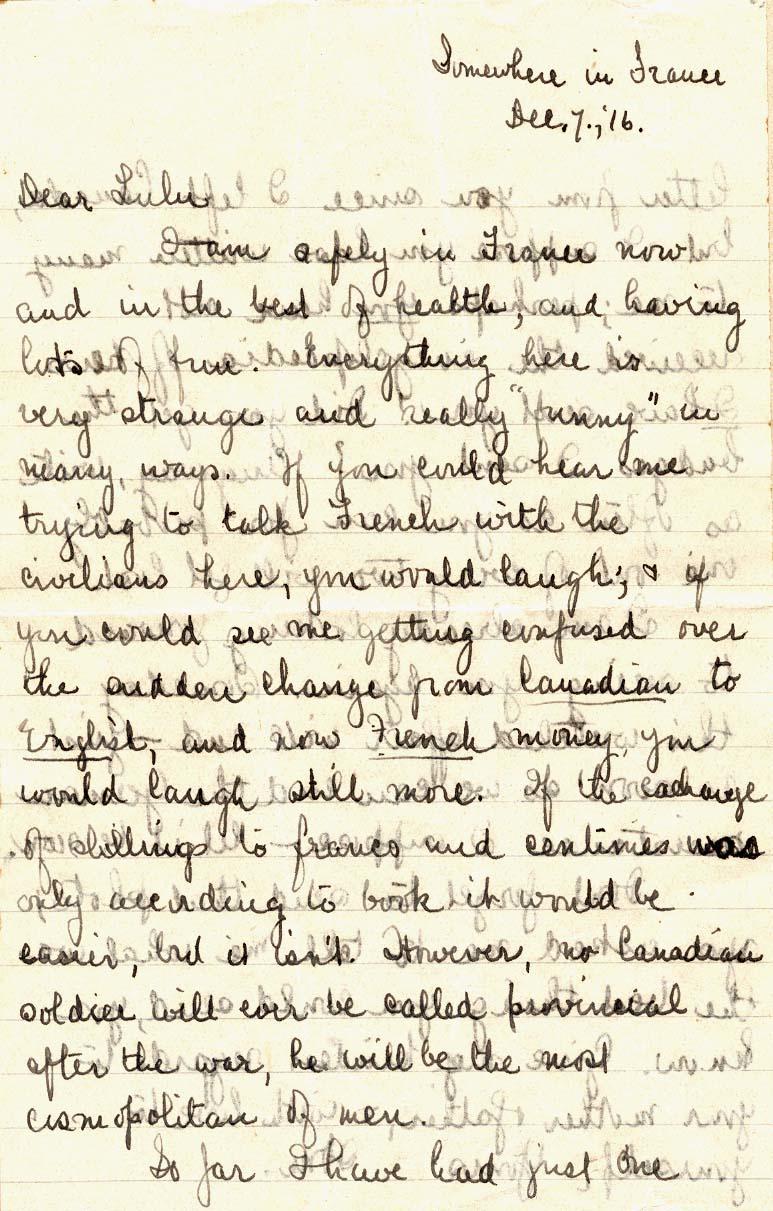 Somewhere in France
Dec. 7., '16.
Dear Lulu
I am safely in France now
and in the best of health, and having
lots of fun. Everything here is
very strange and really "funny" in
many ways. If you could hear me
trying to talk French with the
civilians here, you would laugh; & if
you could see me getting confused over
the sudden change from Canadian to
English, and now French money, you
would laugh still more. If the exchange
of shillings to francs and centimes was
only according to book it would be
easier, but it isn't. However, no Canadian
soldier will ever be called provincial
after the war, he will be the most
cosmopolitan of men.
So far I have had just one